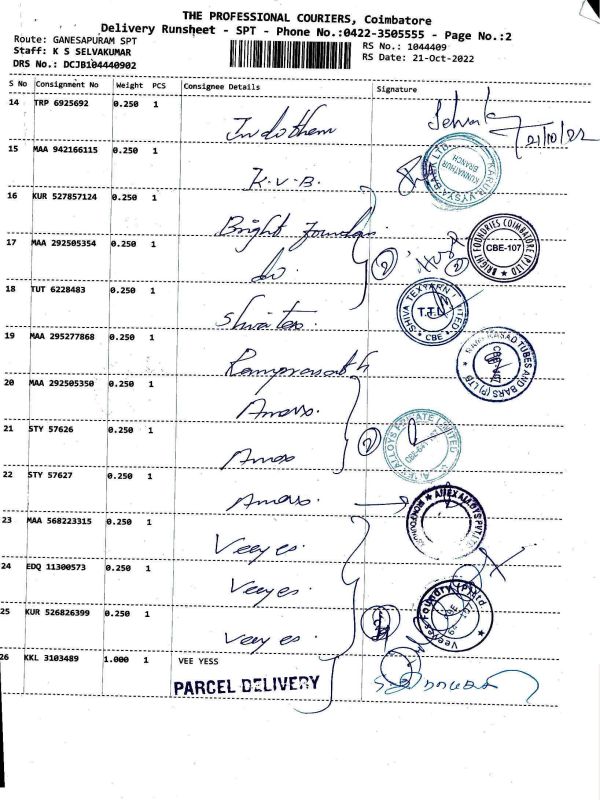 THE PROFESSIONAL COURIERS, Coimbatore
Delivery Runsheet - SPT - Phone No.:0422-3505555 - Page No.:2
Route: GANESAPURAM SPT
Staff: K S SELVAKUMAR
DRS No.: DCJB104440902
RS No.: 1044409
RS Date: 21-Oct-2022
S No Consignment No Weight PCS Consignee Details Signature
14 TRP 6925692 0.250 1 Indothem
21/10/22
15 MAA 942166115 0.250 1 K.V.B. KARUR VYSYA BANK LTD KUNNATHUR BRANCH
16 KUR 527857124 0.250 1 Bright BRIGHT FOUNDRIES COIMBATORE (P) LTD CBE-107
17 MAA 292505354 0.250 1 do 2 2
18 TUT 6228483 0.250 1 Shivatex SHIVA TEXYARN LIMITED CBE
19 MAA 295277868 0.250 1 Ramprasath TUBES AND BARS (P) LTD
20 MAA 292505350 0.250 1
21 STY 57626 0.250 1 2 PRIVATE LIMITED
22 STY 57627 0.250 1
23 MAA 568223315 0.250 1 Veeyes.
24 EDQ 11300573 0.250 1 Veeyes.
25 KUR 526826399 0.250 1 Veeyes. Veeyes Foundry (P) Ltd
26 KKL 3103489 1.000 1 VEE YESS
PARCEL DELIVERY